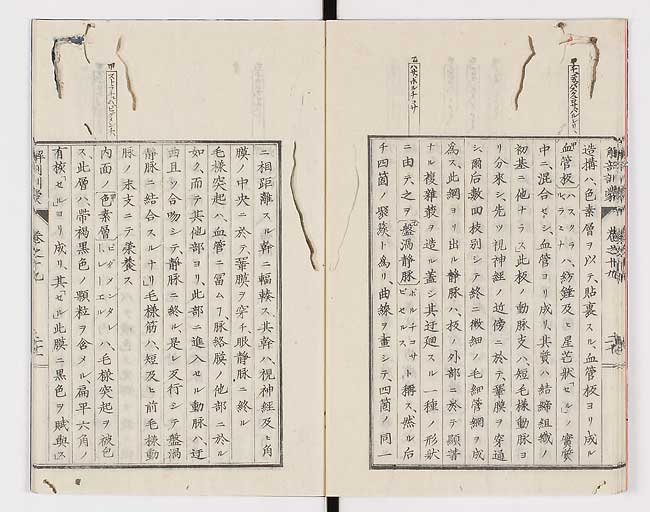 造搆ハ、色素層ヲ以テ、貼裏スル、血管板ヨリ成ル
血管板ハ、紡錘及ヒ星芒狀「セル」ノ實質
中ニ、混合セシ、血管ヨリ成リ、其質ハ結締組織ノ
初基ニ他ナラス此板ノ動脈支ハ、短毛樣動脈ヨ
リ分來シ先ツ視神經ノ近傍ニ於テ、鞏膜ヲ穿通
シ、爾後數回枝別シテ終ニ微細ノ毛細管網ヲ成
爲ス、此網ヨリ出ル靜脈ハ、板ノ外部ニ於テ顯著
ナル複雜叢ヲ造ル蓋シ其迂廻スル一種ノ形狀
ニ由テ、之ヲ盤渦靜脈ト稱ス、然ル后
チ四箇ノ聚簇ト爲リ、曲線ヲ畫シテ、四箇ノ同一
ニ相距離スル幹ニ輻輳ス、其幹ハ、視神經及ヒ角
膜ノ中央ニ於テ、鞏膜ヲ穿チ眼靜脈ニ終ル
毛樣突起ハ、血管ニ冨ム﹁脈絡膜ノ他部ニ於ル
如ク、而テ其他部ヨリ、此部ニ進入セル動脈ハ、迂
曲且ツ合吻シテ、靜脈ニ終ル、是レ反行シテ盤渦
靜脈ニ結合スルナリ毛樣筋ハ、短及ヒ前毛樣動
脈ノ末支ニテ榮養ス
內面ノ色素層ハ、毛樣突起ヲ被包
ス、此層ハ、帶褐黑色ノ顆粒ヲ含メル、扁平六角ノ
有核「セル」ヨリ成リ、其「セル」此膜ニ黑色ヲ賦與ス